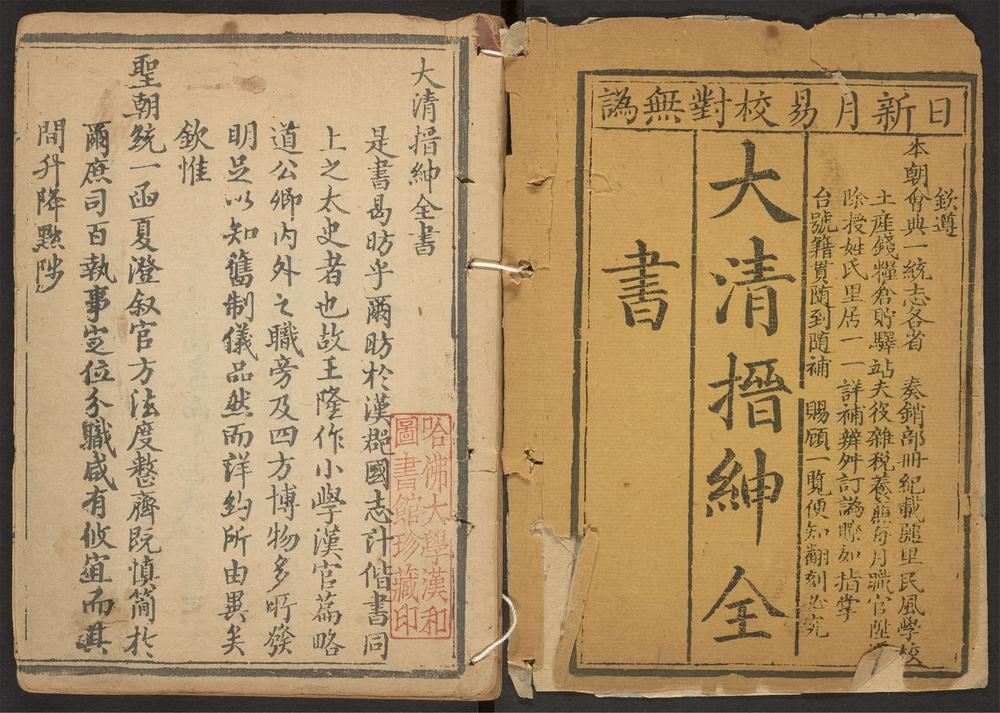 日新月易校對無譌
欽遵
本朝會典一統志各省　奏銷部冊紀載疆里民風學校
土產錢糧倉貯驛站夫役雜稅養蔴每月職官陞
除授姓氏里居一一詳補辨舛訂譌瞭如指掌
台號籍貫隨到隨補　賜顧一覽便知翻刻必究
大清搢紳全
書
大清搢紳全書
是書曷昉乎爾昉於漢郡國志計偕書同
上之太史者也故王隆作小學漢官篇略
道公卿內外之職旁及四方博物多所發
明足以知舊制儀品然而詳約所由異矣
欽惟
聖朝統一函夏澄叙官方法度整齊既慎簡於
爾庶司百執事定位分職咸有攸宜而其
間升降黜陟
哈佛大學漢和
圖書館珍藏印